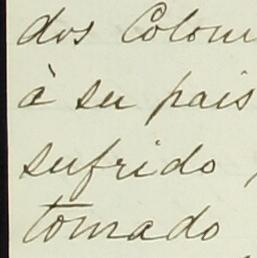 dos Colom
à su pais
sufrido,
tomado